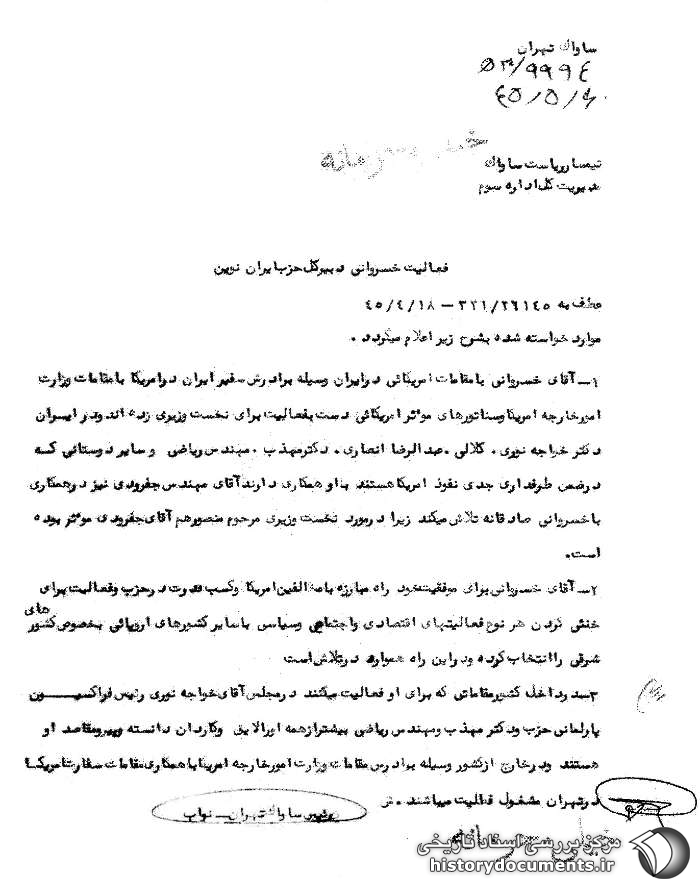 ساواک تهران
۵۳/۹۹۹٤
٤۵/۵/
تیمسار ریاست ساواک
مدیریت کل اداره سوم
فعالیت خسروانی دبیرکل حزب ایران نوین
عطف به ۳۲۱/۲۶۱۴۵ – ۴۵/۴/۱۸
موارد خواسته شده بشرح زیر اعلام میگردد .
۱ــ آقای خسروانی با مقامات امریکائی در ایران وسیله برادرش سفیر ایران در امریکا با مقامات وزارت
امورخارجه امریکا وسناتورهای موثر امریکائی دست بفعالیت برای نخست وزیری زده اند ودر ایـران
دکتر خواجه نوری ، کلالی ، عبدالرضا انصاری ، دکترمهذب ، مهندس ریاضی و سایر دوستانی کـه
درضمن طرفداری جدی نفوذ امریکا هستند با او همکاری دارند آقای مهندس جفرودی نیز در همکاری
با خسروانی صادقانه تلاش میکند زیرا درمورد نخست وزیری مرحوم منصورهم آقای جفرودی موثر بوده
است.
۲ــ آقای خسروانی برای موفقیت خود راه مبارزه با مخالفین امریکا وکسب قدرت در حزب وفعالیت برای
خنثی کردن هر نوع فعالیتهای اقتصادی واجتماعی وسیاسی با سایر کشورهای اروپائی بخصوص کشور های
شرقی را انتخاب کرده ودر این راه همواره درتلاش است
۳ــ در داخل کشور مقاماتی که برای او فعالیت میکنند در مجلس آقای خواجه نوری رئیس فراکسیـــون
پارلمانی حزب ودکتر مهذب ومهندس ریاضی بیشتر از همه اورا لایق وکاردان دانسته وپیرومقاصد او
هستند ودر خارج از کشور وسیله برادرش مقامات وزارت امورخارجه امریکا با همکاری مقامات سفارت امریکـا
درتهران مشغول فعالیت میباشند .
رئیس ساواک تهران ــ نواب
مرکز بررسی اسناد تاریخی
historydocuments.ir